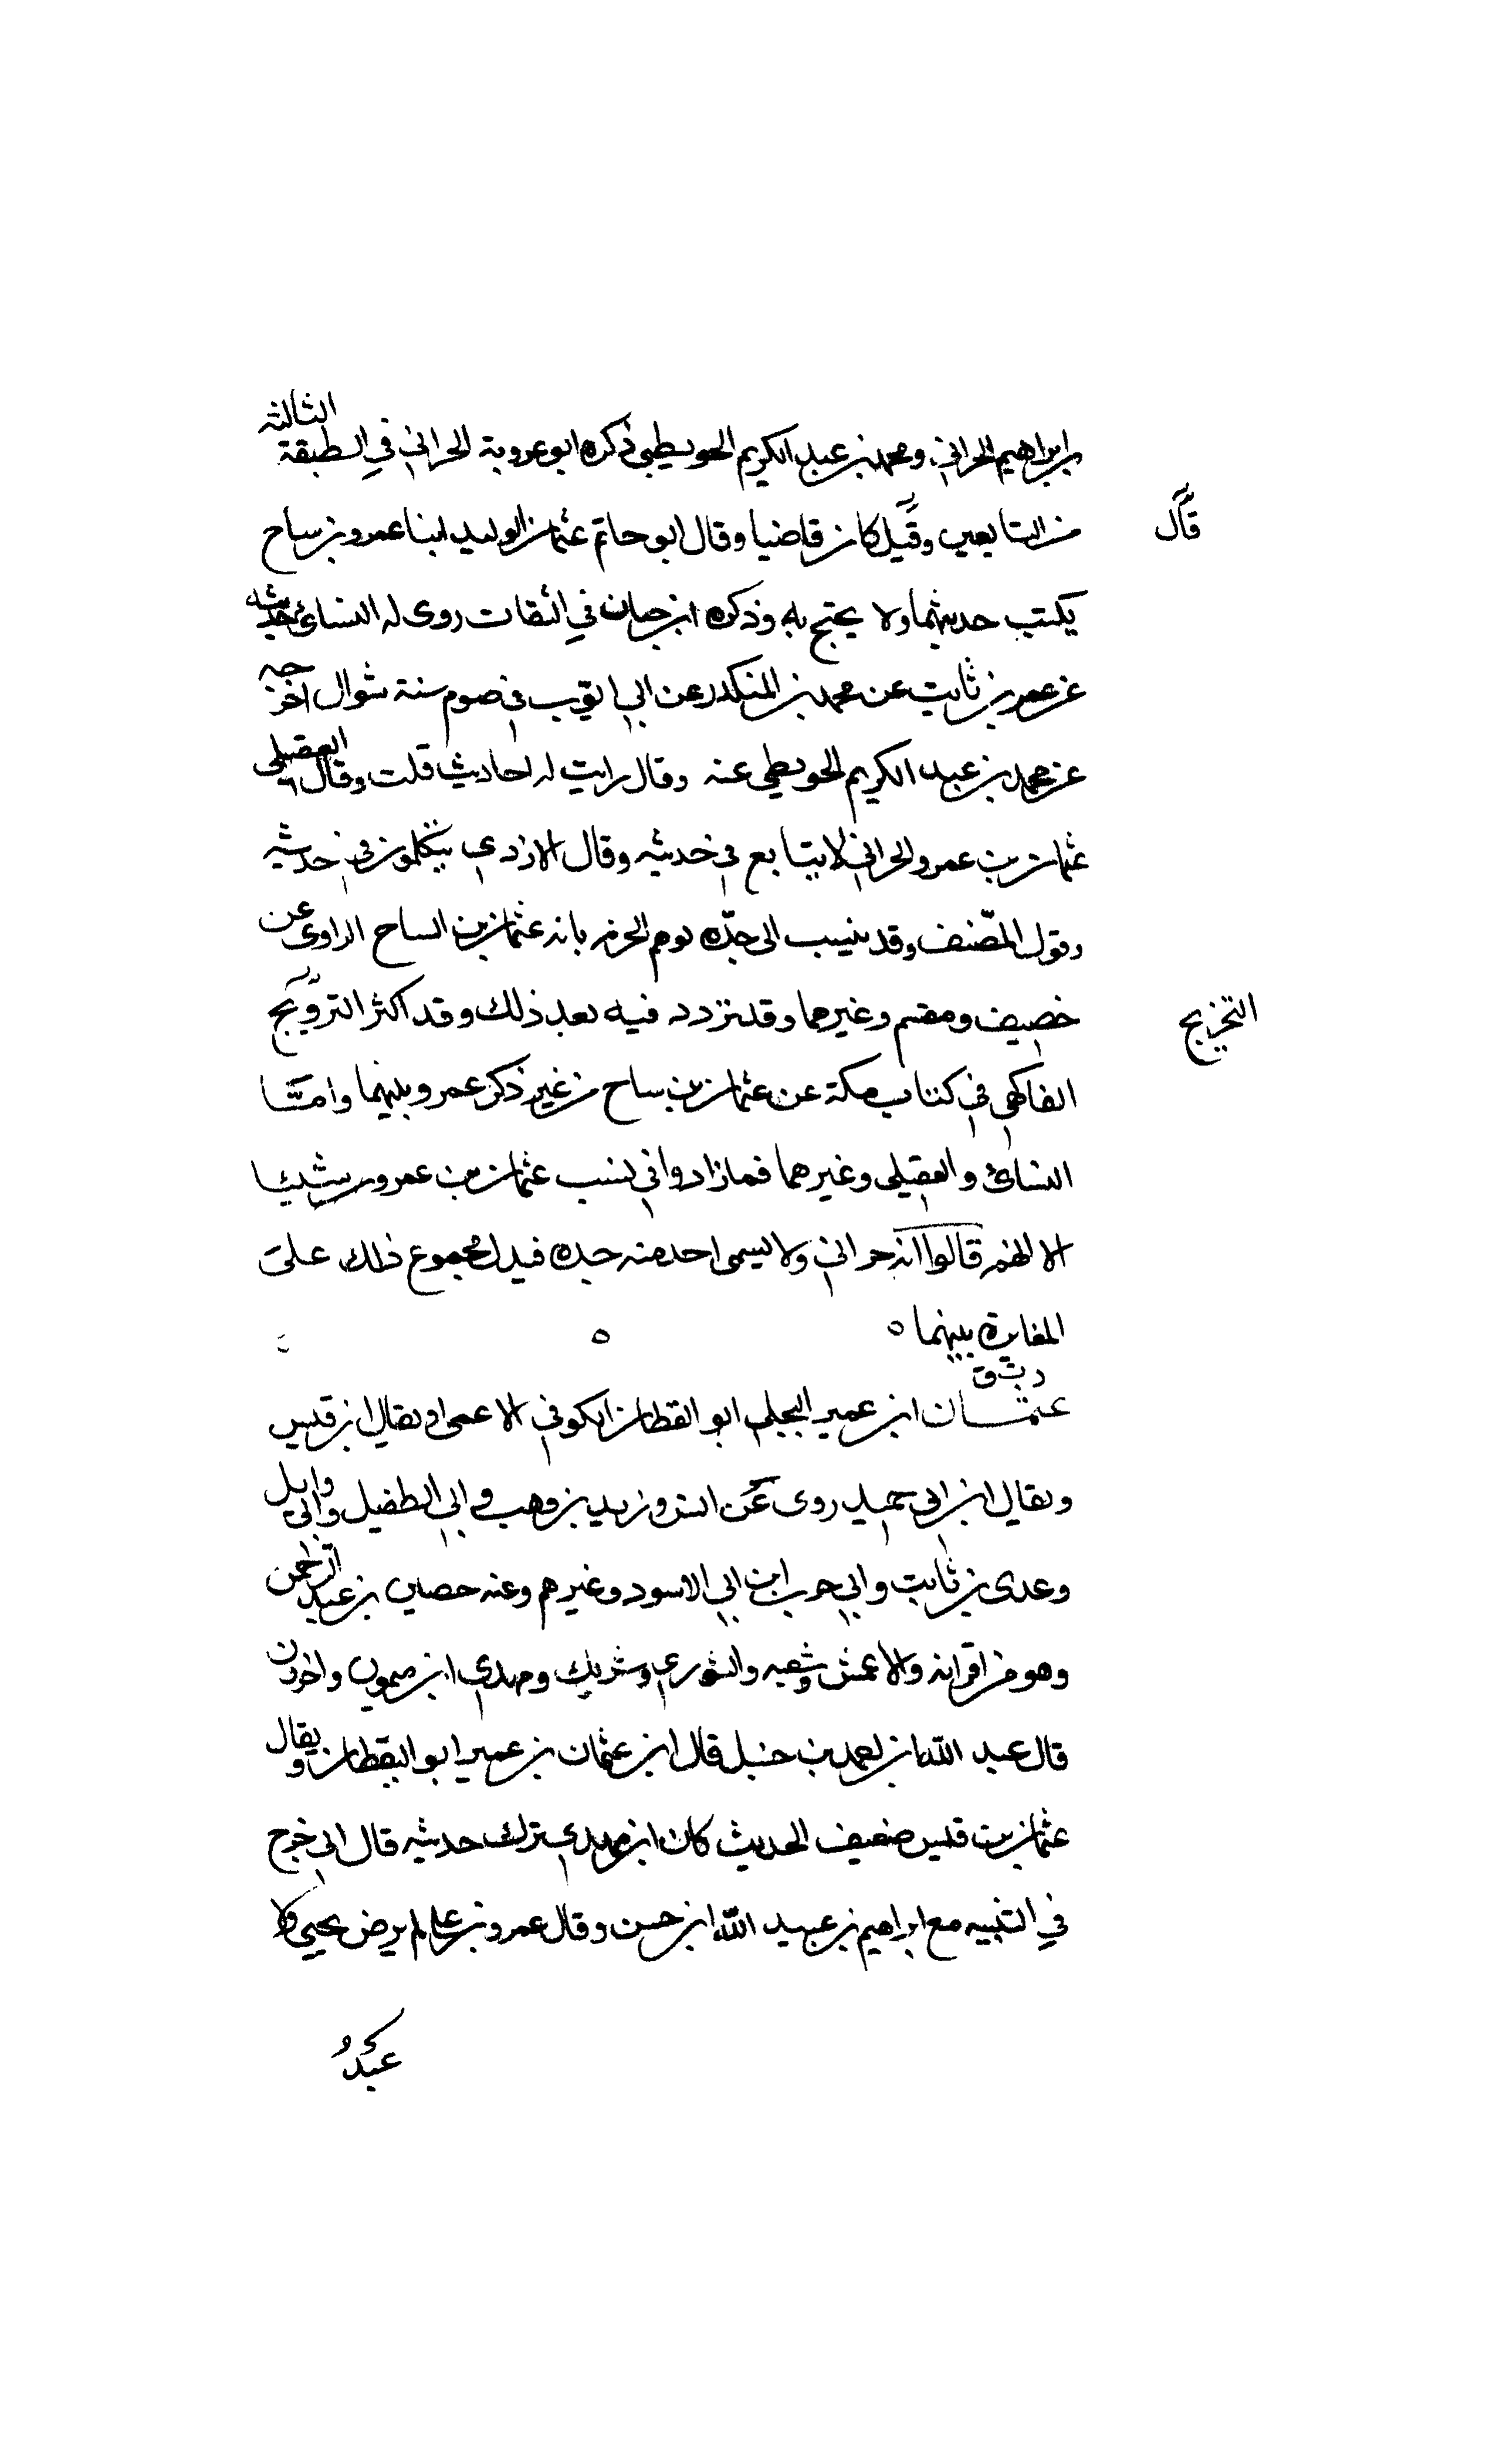 بن ابراهيم الحراني ومحمد بن عبد الكريم الحويطبي ذكره ابو عروبة الحراني في الطبقة الثالثة
من التابعين وقيل كان قاضيا وقال ابو حاتم عثمان والوليد ابنا عمرو بن ساج
قال
يكتب حديثهما ولا يحتج به وذكره ابن حبان في الثقات روى له النسائي حديثه
عن عمر بن ثابت عن محمد بن المنكدر عن ابي ايوب في صوم ستة شوال اخرجه
عن محمد بن عبد الكريم الحويطي عنه وقال رايت له احاديث قلت وقال العقيلي
عثمان بن عمرو الحراني لا يتابع في حديثه وقال الازدي يتكلمون في حديثه
وقول المصنف وقد ينسب الى جده يوهم الجزم بانه عثمان بن الساج الراوى عن
خصيف ومقسم وغيرهما وقد تردد فيه بعد ذلك وقد اكثر الترويج
التخريج
الفاكهي في كتاب مكة عن عثمان بن ساج من غير ذكر عمرو بينهما وامّا
النسائي والعقيلي وغيرهما فما زادوا في نسب عثمان بن عمرو شيئا
الا انهم قالوا انه حراني ولا يسمى احد منه جده فيدل مجموع ذلك على
المغايرة بينهما ه ه
د ت ق
عثمان ابن عمير البجلي ابو القطان الكوفي الاعمى ويقال ابن قيس
ويقال ابن ابي حميد روى عن انس وزيد بن وهب و ابي الطفيل وابي وايل
وعدى بن ثابت وابي حرب ابن ابي الاسود وغيرهم وعنه حصين بن عبد الرحمن
وهو من اقرانه والاعمش وشعبه والثوري وشريك ومهدي ابن ميمون واخرون
قال عبد الله بن احمد بن حنبل قال ابن عثمان بن عمير ابو اليقظان ويقال
عثمان بن قيس ضعيف الحديث كان ابن مهدي ترك حديثه قال ابي خرج
في التنبيه مع ابراهيم بن عبيد الله ابن حسن وقال عمرو بن علي لم يرض يحيي ولا
عبدُ